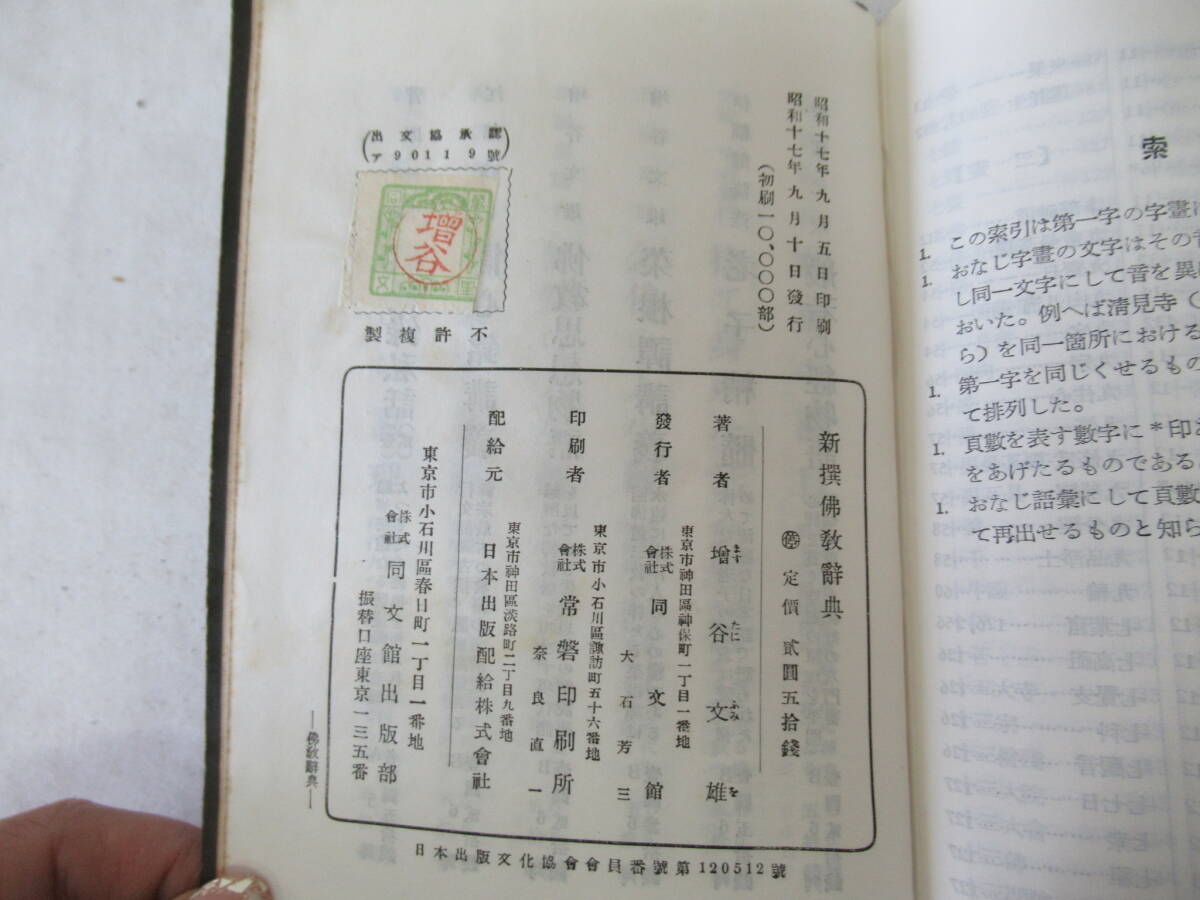 昭和十七年九月五日印刷
昭和十七年九月十日發行
(初刷一〇、〇〇〇部)
出文協承認
ア90119號
增谷
不許複製
新撰佛敎辭典
㊞ 定價 貳圓五拾錢
著者 增谷文雄
ます たに ふみ を
東京市神田區神保町一丁目一番地
發行者 株式會社 同文館
大石芳三
東京市小石川區諏訪町五十六番地
印刷者 株式會社 常磐印刷所
奈良直一
東京市神田區淡路町二丁目九番地
配給元 日本出版配給株式會社
東京市小石川區春日町一丁目一番地
株式會社 同文館出版部
振替口座東京一三五番
―佛敎辭典―
日本出版文化協會會員番號第120512號
索
1. この索引は第一字の字畫に
1. おなじ字畫の文字はその
し同一文字にして音を異
おいた。例へば清見寺(
ら)を同一箇所における
1. 第一字を同じくせるもの
て排列した。
1. 頁數を表す數字に*印
をあげたるものである
1. おなじ語彙にして頁數
て再出せるものと知ら